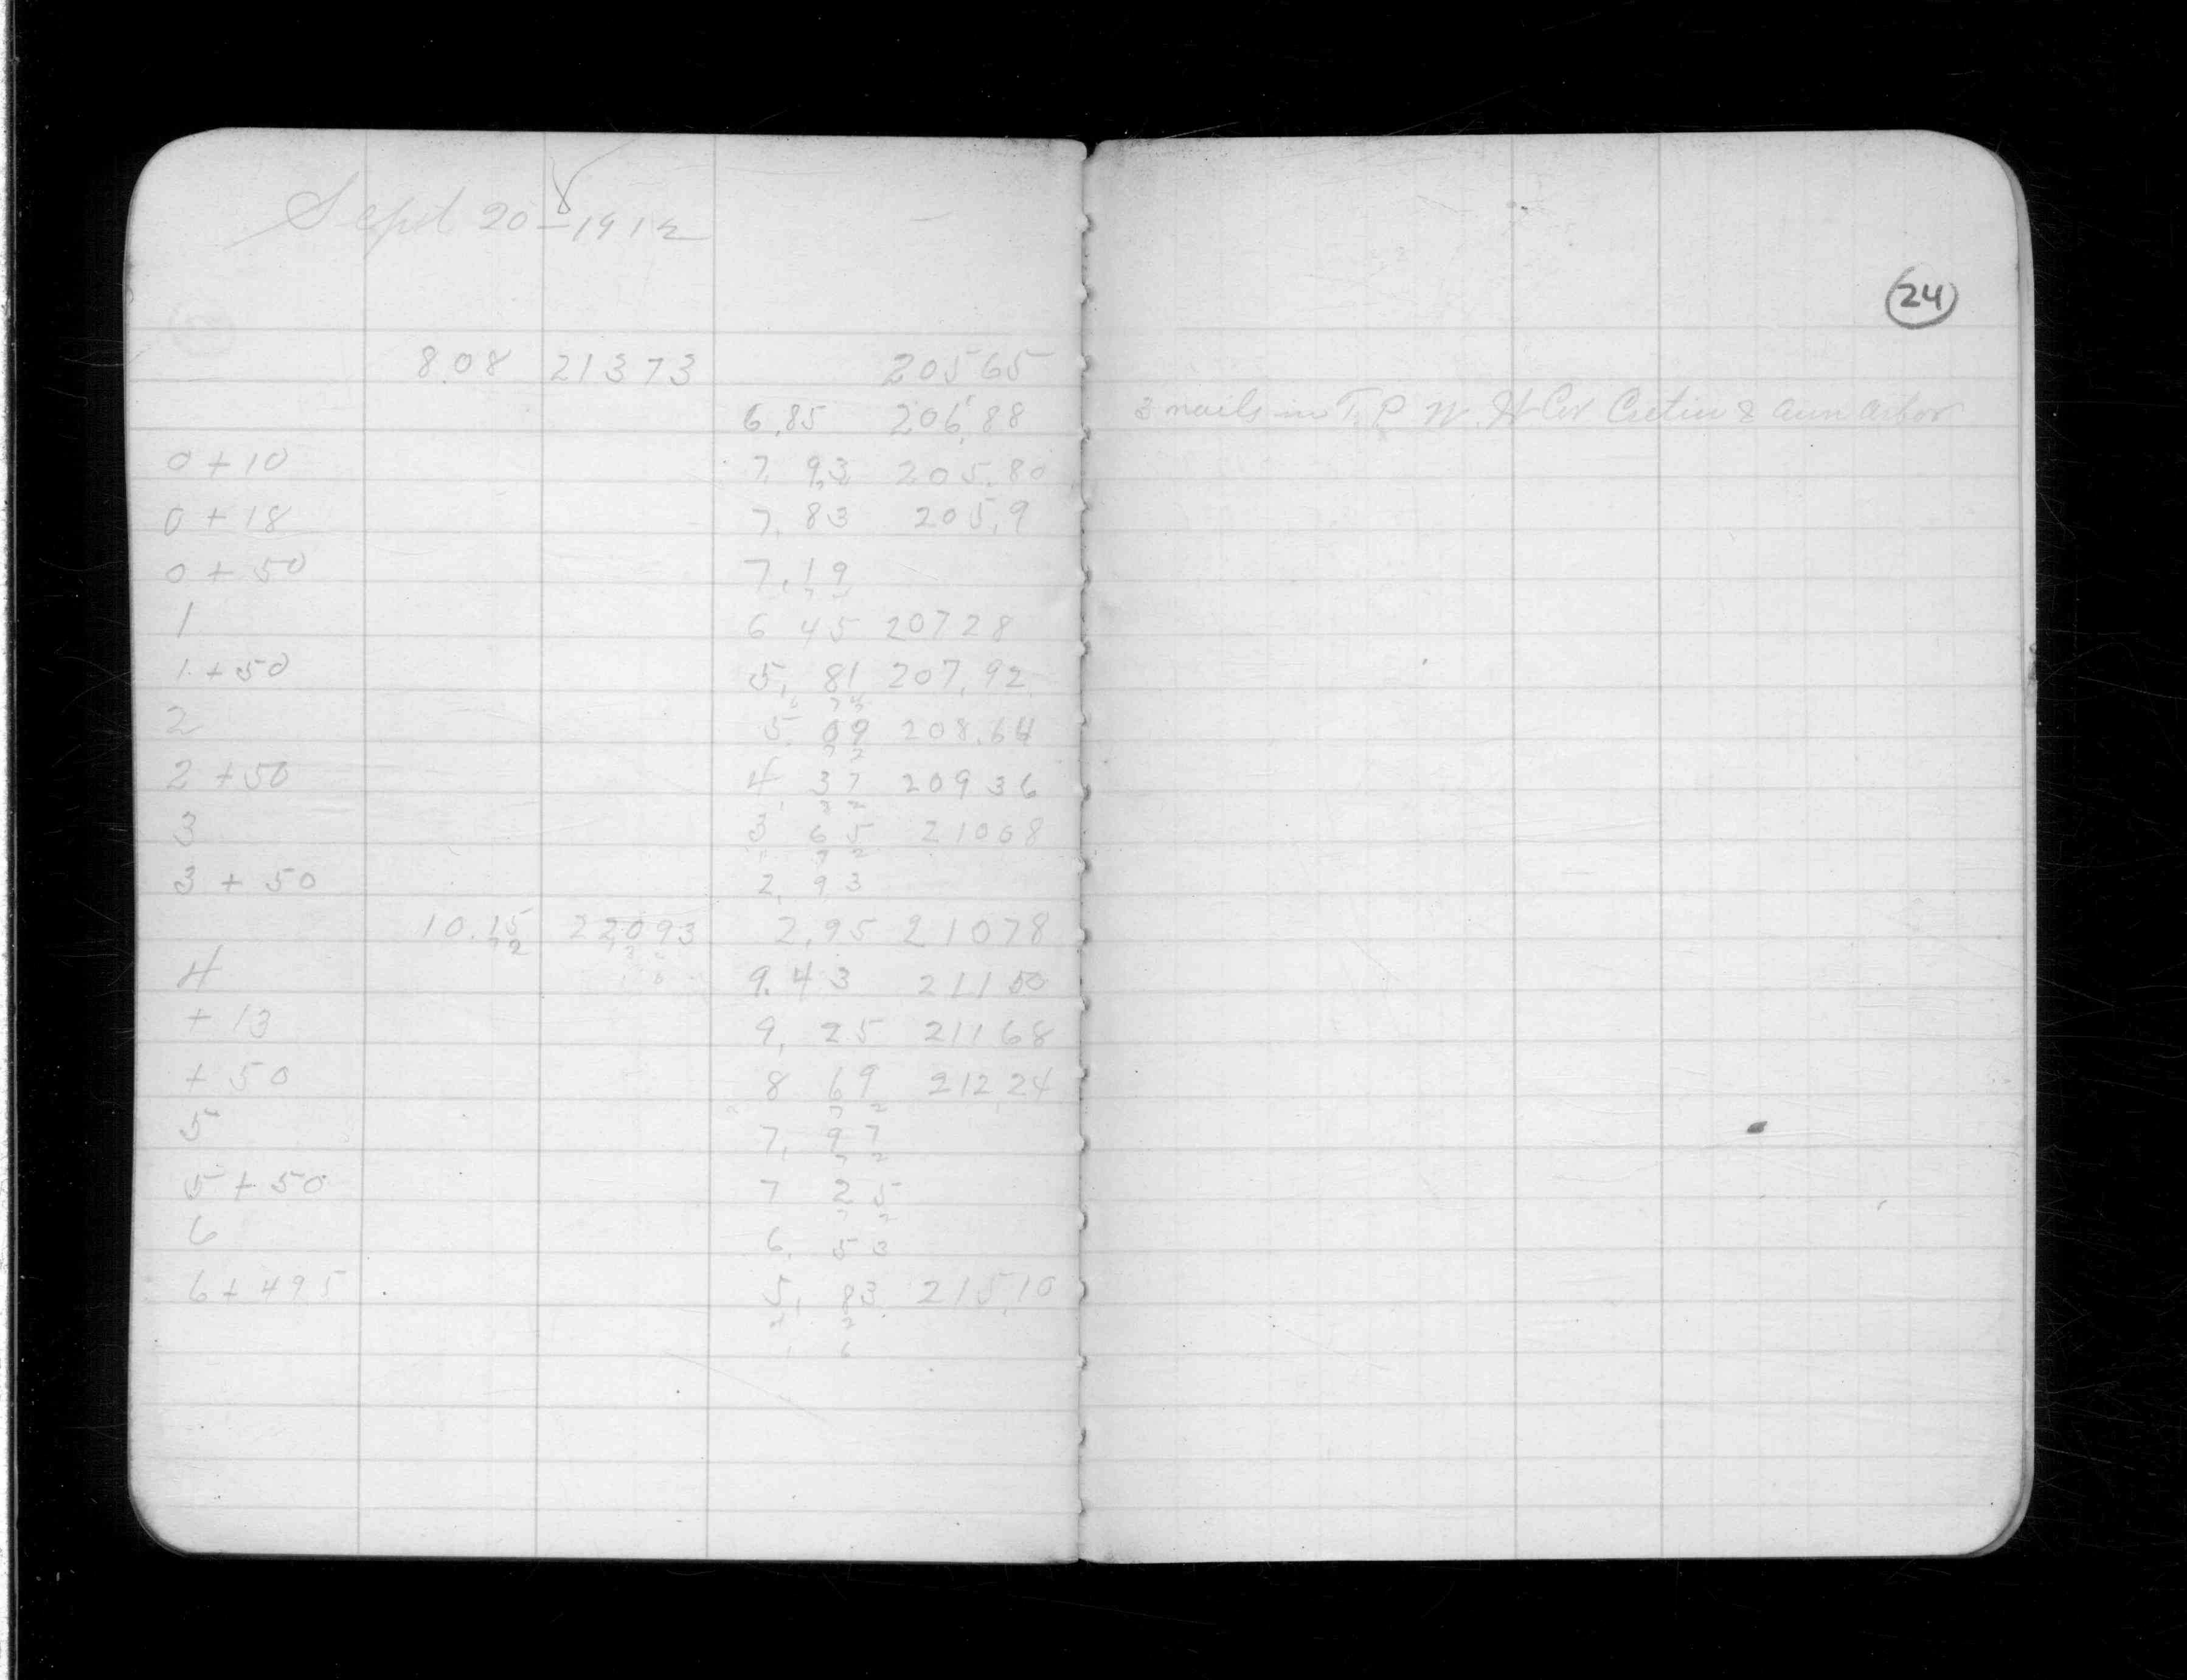 Sept 20 - 1912
24
8.08 21373 20565
6.85 206.88 3 nails in T. P. N. W. Cor & Ann Arbor
0 + 10 7. 93 205.80
0 + 18 7. 83 205.9
0 + 50 7.19
1 6 45 20728
1 + 50 5. 81 207.92
7 2
2 5 09 208.64
7 2
2 + 50 4 37 20936
7 2
3 3 65 21008
7 2
3 + 50 2. 93
10.15 22093 2.95 21078
4 9.43 21150
+ 13 9. 25 21168
+ 50 8 69 212 24
7 2
5 7. 97
7 2
5 + 50 7 25
7 2
6 6. 53
6 + 49.5 5. 83 215.10